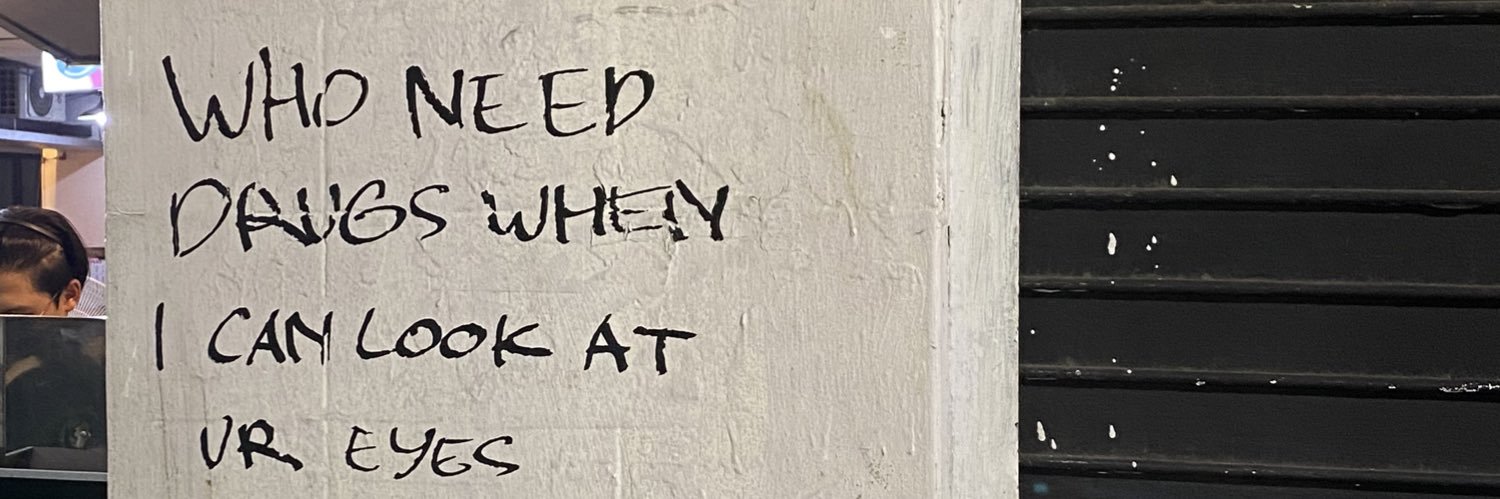 WHO NEED
DRUGS WHEN
I CAN LOOK AT
UR EYES